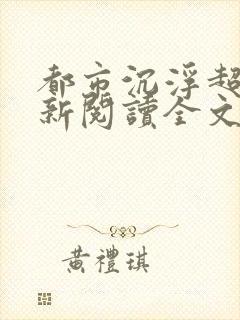 都市沉浮超
新閱讀全文
黃禮琪